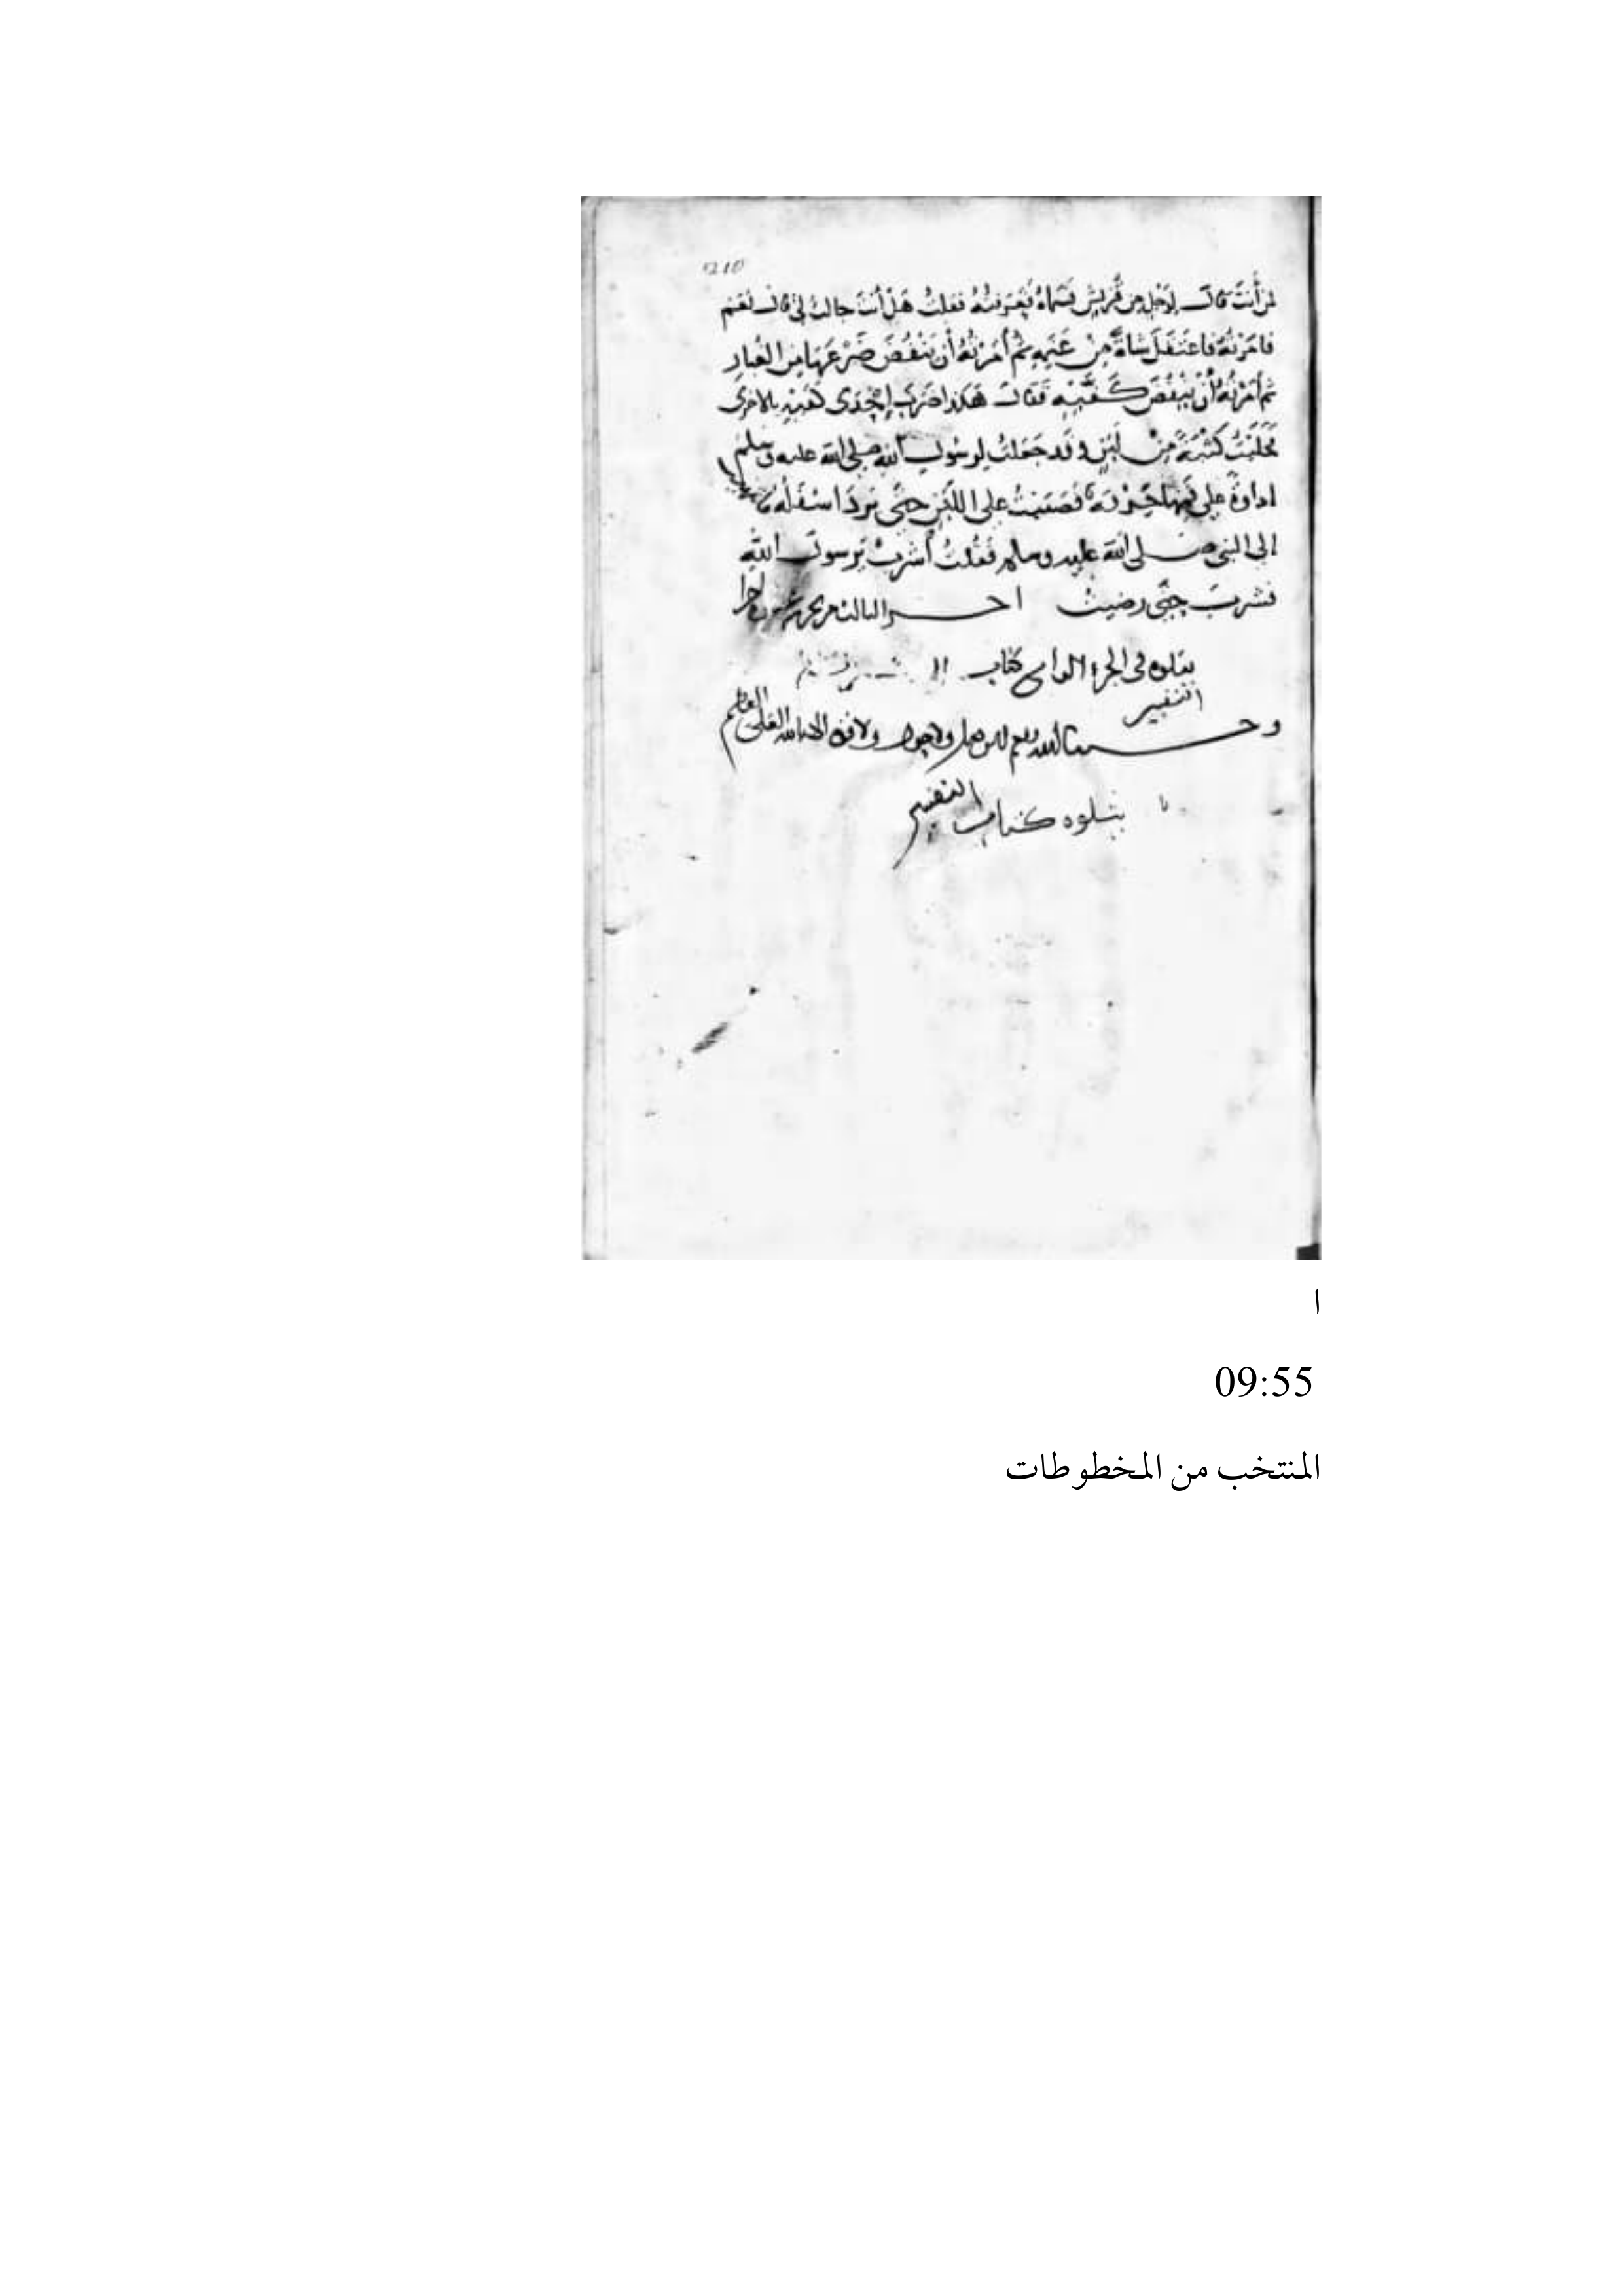 210
لمن أنت قال لرجل من قريش فسماه فعرفته فقلت هل أنت حالب لي قال نعم
فامرته فاعتقل شاة من غنمه ثم أمرته أن ينفض ضرعها من الغبار
ثم أمرته أن ينفض كفيه فقال هكذا ضرب إحدى كفيه بالاخرى
فحلب كثبة من لبن وقد جعلت لرسول الله صلى الله عليه وسلم
اداوة على فمها خرقة فصببت على اللبن حتى برد اسفله
الى النبي صلى الله عليه وسلم فقلت أشرب يرسول الله
فشرب حتى رضيت اخر الثالث
يتلوه في الجزء الرابع كتاب
التفسير
وحسبنا الله ونعم الوكيل ولا حول ولا قوة الا بالله العلي العظيم
يتلوه كتاب التفسير
ا
09:55
المنتخب من المخطوطات